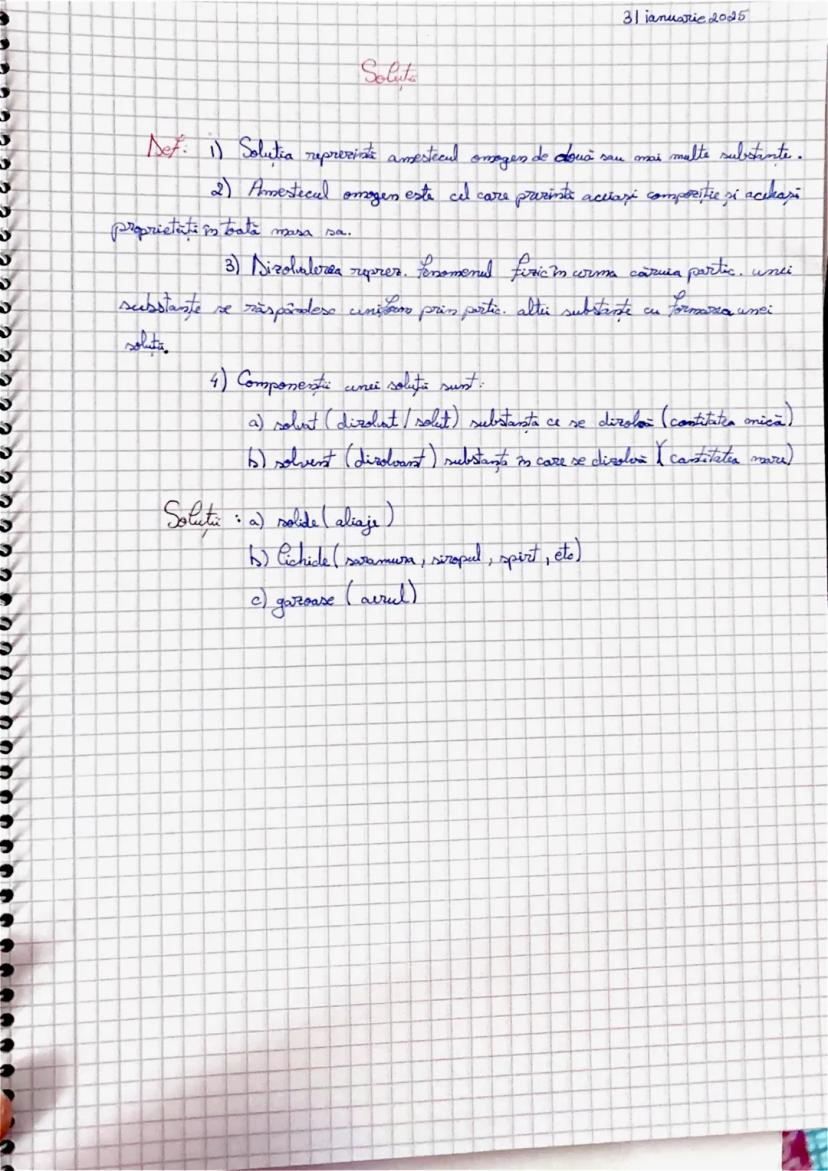 31 ianuarie 2025
Soluții
Def: 1) Soluția reprezintă amestecul omogen de două sau mai multe substanțe.
2) Amestecul omogen este cel care prezintă aceiași compoziție și aceleași
proprietăți în toată masa sa.
3) Dizolvalerea reprez. fenomenul fizic în urma căruia partic. unei
substanțe se răspândesc uniform prin partic. altei substanțe cu formarea unei
soluții.
4) Componenții unei soluții sunt:
a) solvat (dizolvat / solut) substanța ce se dizolvă (cantitatea mică)
b) solvent (dizolvant) substanța în care se dizolvă (cantitatea mare)
Soluții : a) solide (aliaje)
b) lichide (saramura, siropul, spirt, etc)
c) gazoase (aerul)